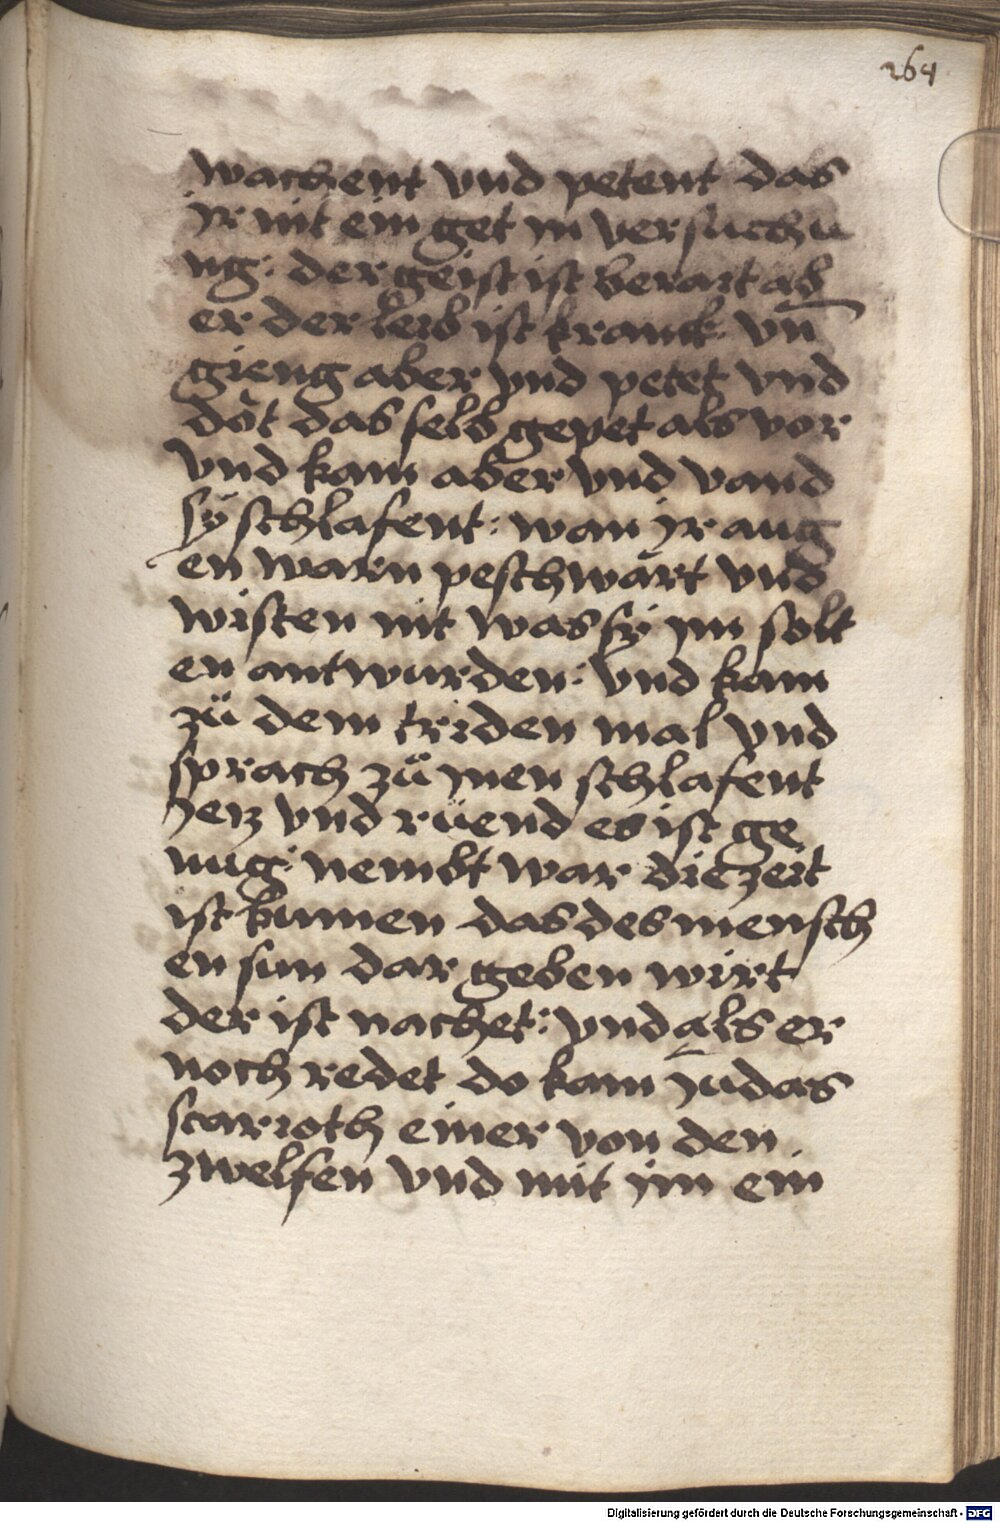 264
wachent vnd petent das
jr nit ein get jn versuchu
ng: der geist ist berait ab
er der leib ist kranck. vn̄
gieng aber vnd petet vnd
dȯt das selb gepet als vor
vnd kam aber vnd vand
sÿ schlafent: wan jr aug
en warn peschwärt vnd
wisten nit was sÿ jm solt
en antwurden: vnd kam
zů dem triden mal vnd
sprach zů jnen schlafent
jecz vnd rüend es ist ge
nug: nembt war die zeit
ist kumen das des mensch
en sun dar geben wirt
der ist nachet: vnd als er
noch redet do kam judas
scarioth einer von den
zwelfen vnd mit jm ein
Digitalisierung gefördert durch die Deutsche Forschungsgemeinschaft - DFG